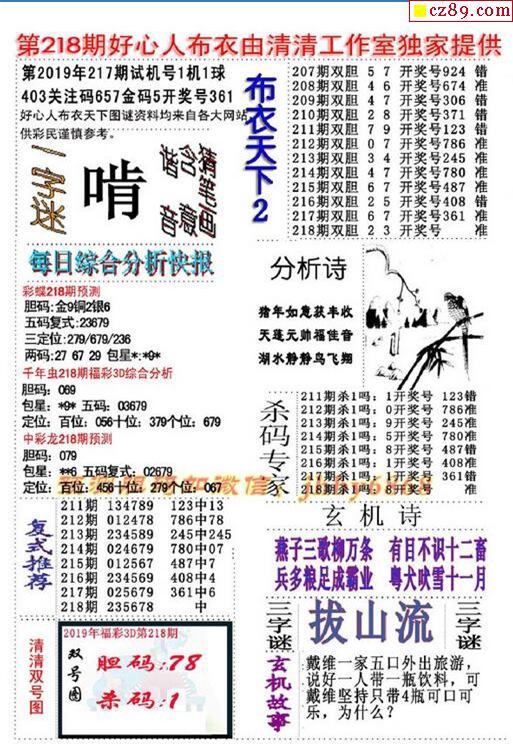 cz89.com
第218期好心人布衣由清清工作室独家提供
第2019年217期试机号1机1球
403关注码657金码5开奖号361
好心人布衣天下图谜资料均来自各大网站
供彩民谨慎参考。
布衣天下2
207期双胆 5 7 开奖号924 错
208期双胆 4 6 开奖号674 准
209期双胆 4 7 开奖号306 错
210期双胆 2 8 开奖号371 错
211期双胆 7 9 开奖号123 错
212期双胆 0 7 开奖号786 准
213期双胆 3 4 开奖号245 准
214期双胆 4 7 开奖号780 准
215期双胆 6 7 开奖号487 准
216期双胆 0 2 开奖号408 准
217期双胆 6 7 开奖号361 准
218期双胆 2 3 开奖号 准
一字迷
啃
猜笔画
含意
谐音
每日综合分析快报
彩蝶218期预测
胆码:金9铜2银6
五码复式:23679
三定位:279/679/236
两码:27 67 29 包星*:*9*
千年虫218期福彩3D综合分析
胆码: 069
包星: *9* 五码: 03679
定位: 百位: 056十位: 379个位: 679
中彩龙218期预测
胆码: 079
包星: **6 五码: 02679
定位: 百位:456十位: 279个位: 067
分析诗
猪年如意获丰收
天蓬元帅福佳音
湖水静静鸟飞翔
杀码专家
211期杀1吗: 1开奖号 123错
212期杀1吗: 0开奖号 786准
213期杀1吗: 9开奖号 245准
214期杀1吗: 5开奖号 780准
215期杀1吗: 8开奖号 487错
216期杀1吗: 1开奖号 408准
217期杀1吗: 1开奖号 361错
218期杀1吗: 8开奖号 准
复式推荐
211期 134789 123中13
212期 012478 786中78
213期 234589 245中245
214期 024679 780中07
215期 012567 487中7
216期 234569 408中4
217期 025679 361中6
218期 235678 中
玄机诗
燕子三歌柳万条 有目不识十二畜
兵多粮足成霸业 粤犬吠雪十一月
清清双号图
2019年福彩3D第218期
双号图
胆码:78
杀码:1
三字谜
拔山流
三字谜
玄机故事
戴维一家五口外出旅游，
说好一人带一瓶饮料，可
戴维坚持只带4瓶可口可
乐，为什么?